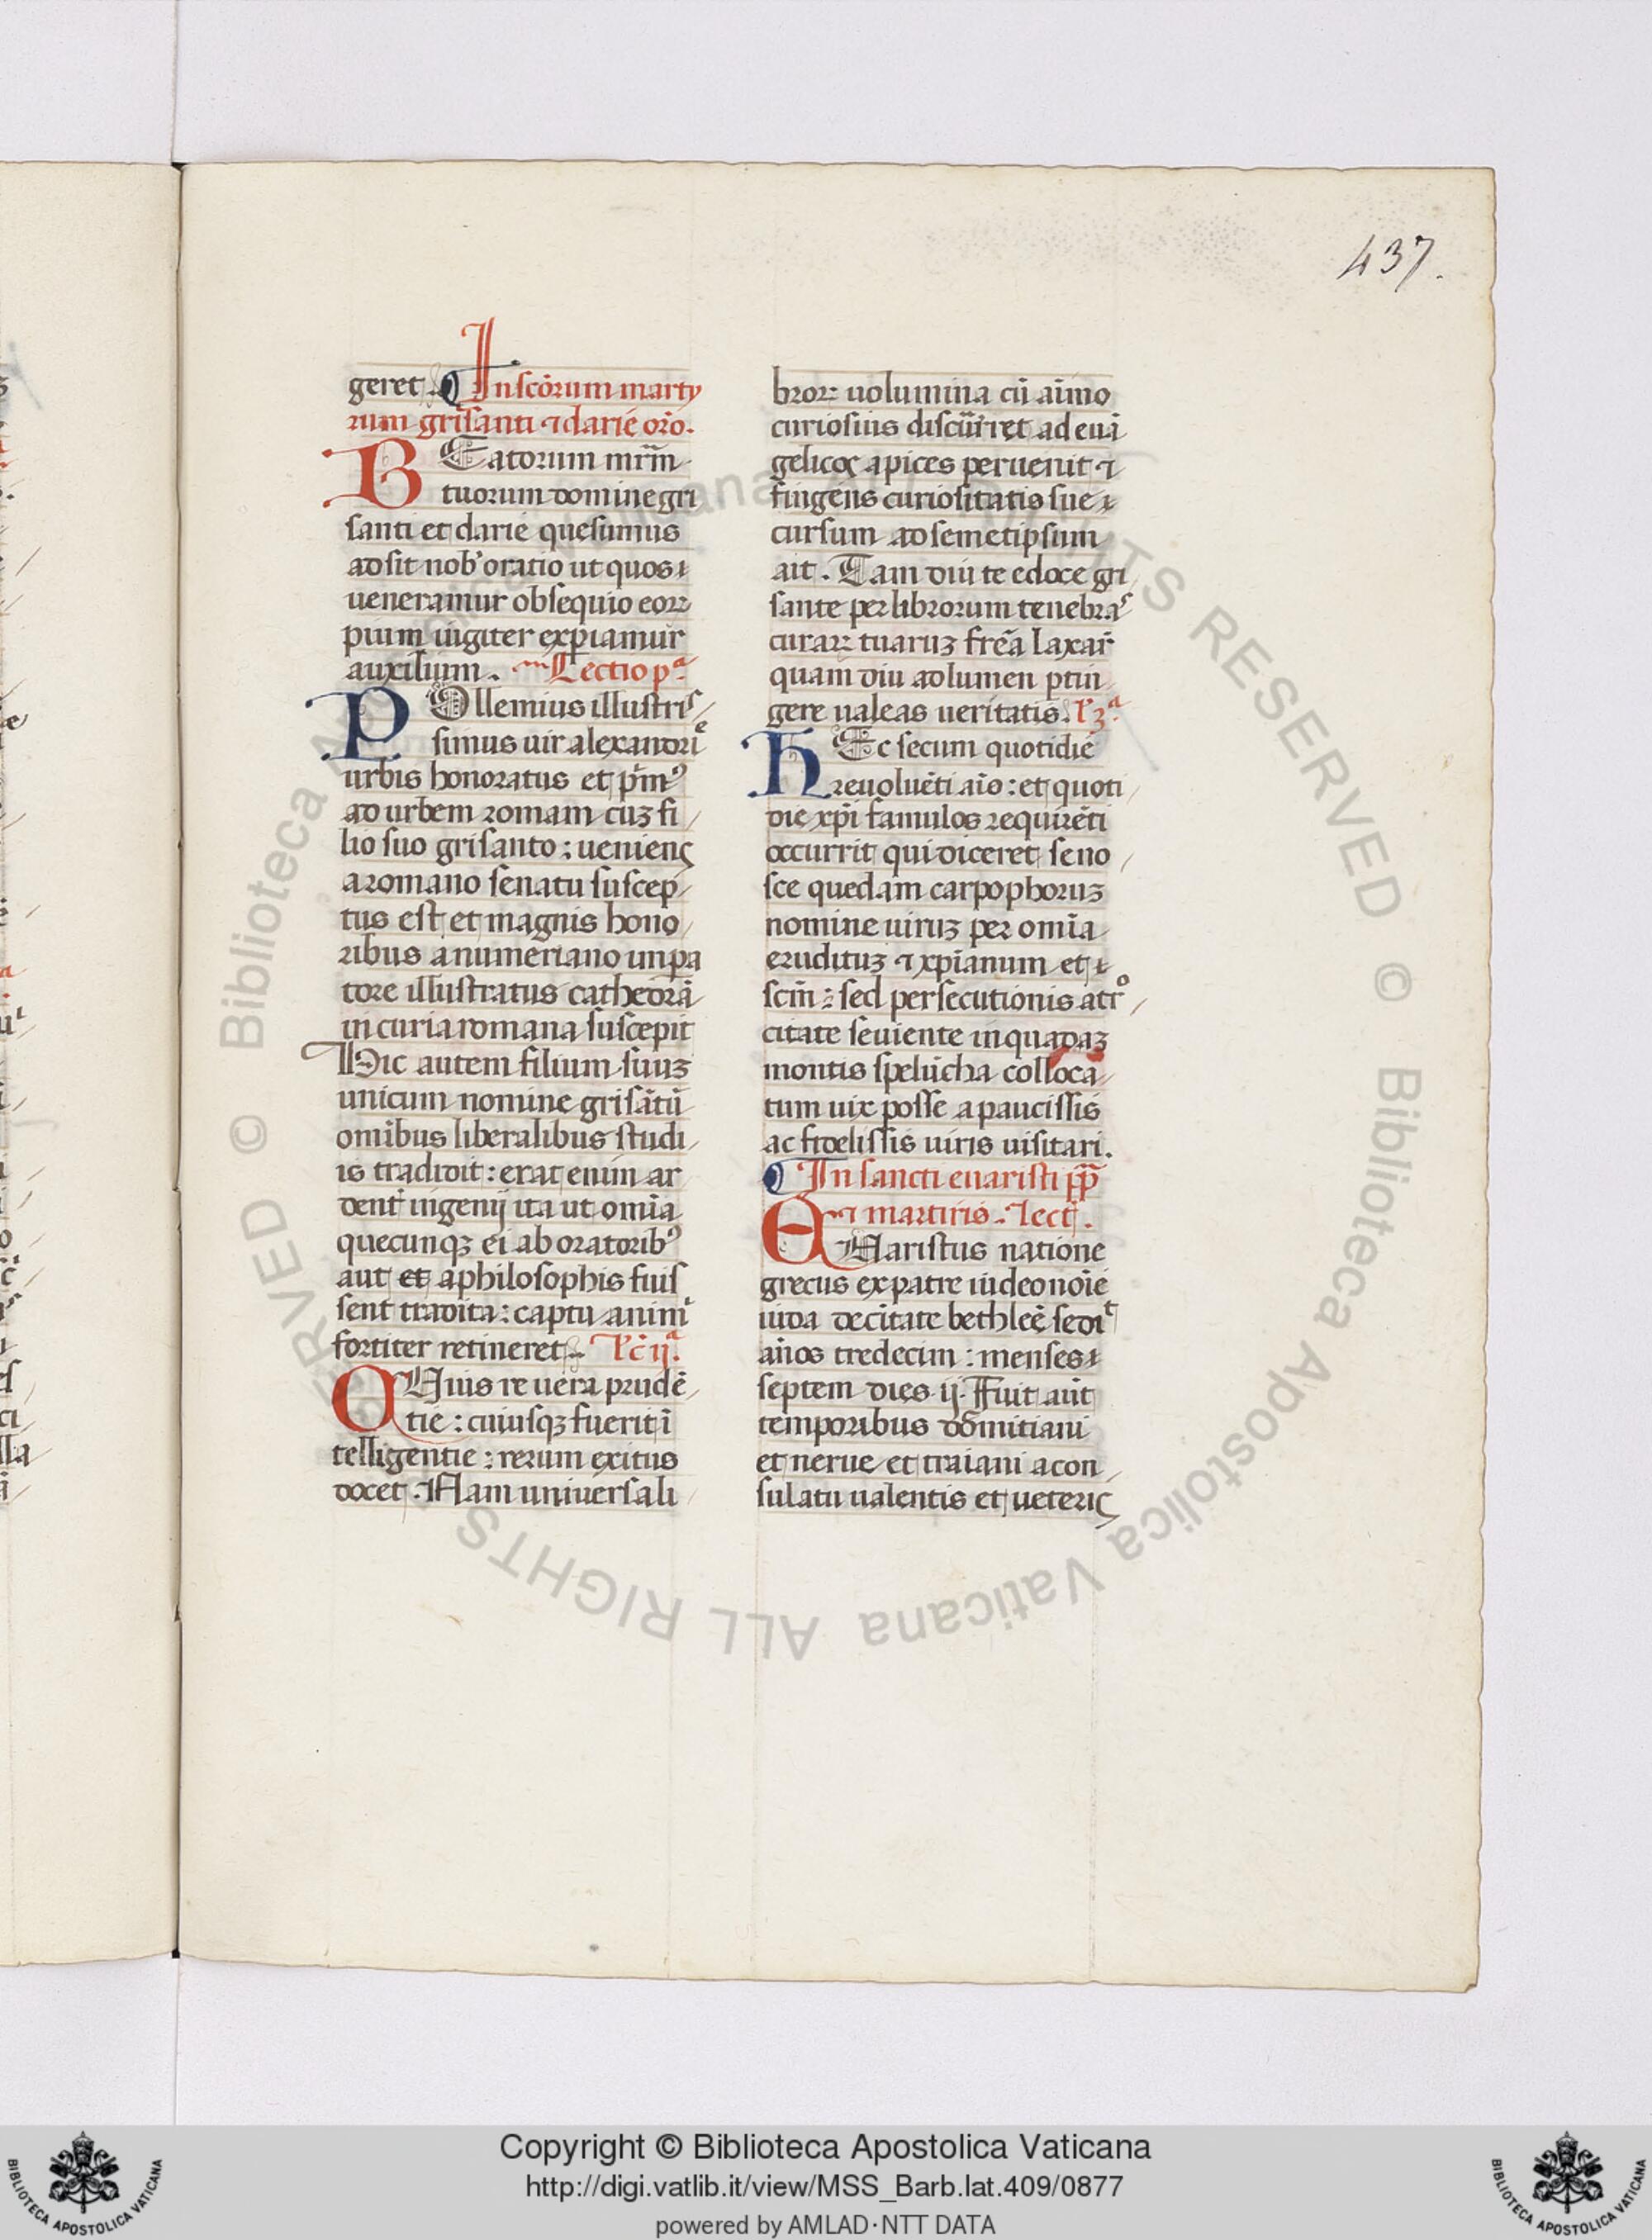 437.
geret. In scōrum marty
rum grisanti ⁊ darie orō.
BEatorum mr̄m
tuorum domine gri
santi et darie quesumus
adsit nob' oratio ut quos
ueneramur obsequio eoꝝ
pium iugiter experiamur
auxilium. Lectio pª.
POllemius illustris
simus uir alexandrie
urbis honoratus et pͥmꝰ
ad urbem romam cuz fi
lio suo grisanto: ueniens
a romano senatu suscep
tus est et magnis hono
ribus a numeriano impa
tore illustratus cathedrā
in curia romana suscepit
Hic autem filium suuz
unicum nomine grisātū
omibus liberalibus studi
is tradidit: erat enim ar
dentͥ ingenij ita ut omīa
quecunqꝫ ei ab oratoribꝰ
aut et a philosophis fuis
sent tradita: captu animi
fortiter retineret. Lc̄ ijª.
QUius re uera prudē
tie: cuiusqꝫ fuerit ī
telligentie: rerum exitus
docet. Nam uniuersali
broꝝ uolumina cū aīmo
curiosius discūrret ad euā
gelicos apices peruenit ⁊
fingens curiositatis sue
cursum ad semetipsum
ait. Tam diu te edoce gri
sante per librorum tenebras
curaꝝ tuaruz frēa laxar̄
quam diu ad lumen ptin
gere ualeas ueritatis. L'3ª.
HEc secum quotidie
reuoluēti aīo: et quoti
die xp̄i famulos requirēti
occurrit qui diceret se no
sce quedam carpophoruz
nomine uiruz per omīa
erudituz ⁊ xp̄ianum et
scm̄: sed persecutionis atrº
citate seuiente in quadaz
montis spelūcha colloca
tum uix posse a paucissis
ac fidelissis uiris uisitari.
In sancti euaristi pp̄
⁊ martiris. lect.
EUaristus natione
grecus ex patre iudeo noīe
iuda de citate bethleē sedit
annos tredecim: menses
septem dies ij. Fuit aūt
temporibus domitiani
et nerue et traiani a con
sulatu ualentis et ueteris
© Biblioteca Apostolica Vaticana ALL RIGHTS RESERVED © Biblioteca Apostolica Vaticana ALL RIGHTS RESERVED
Copyright © Biblioteca Apostolica Vaticana
http://digi.vatlib.it/view/MSS_Barb.lat.409/0877
powered by AMLAD·NTT DATA
BIBLIOTECA APOSTOLICA VATICANA
BIBLIOTECA APOSTOLICA VATICANA